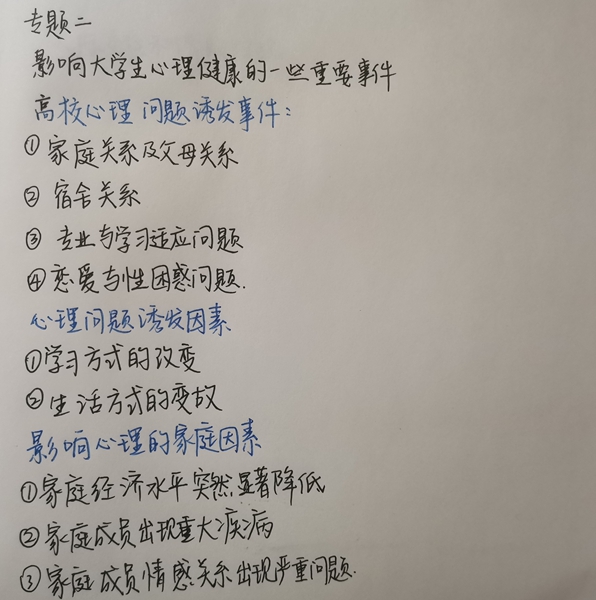 专题二
影响大学生心理健康的一些重要事件
高校心理问题诱发事件：
①家庭关系及父母关系
②宿舍关系
③专业与学习适应问题
④恋爱与性困惑问题.
心理问题诱发因素
①学习方式的改变
②生活方式的变故
影响心理的家庭因素
①家庭经济水平突然显著降低
②家庭成员出现重大疾病
③家庭成员情感关系出现严重问题.